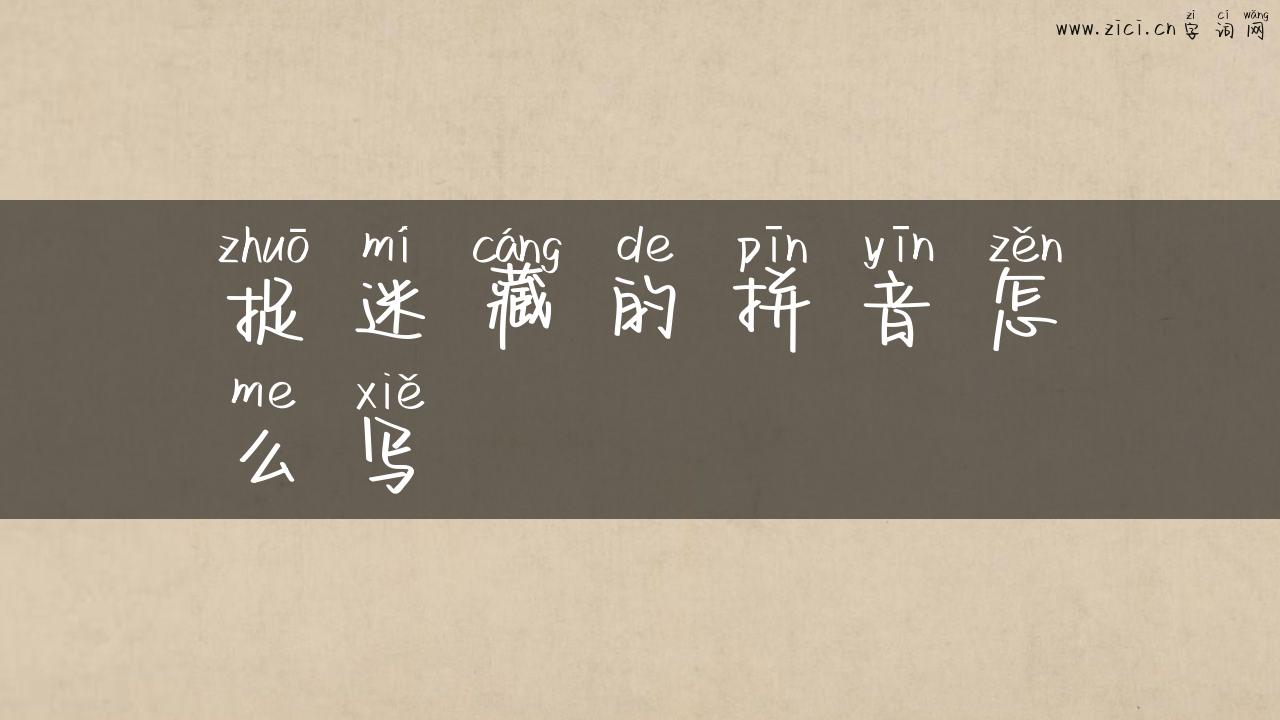 zì cí wǎng
www.zici.cn 字词网
zhuō mí cáng de pīn yīn zěn
捉迷藏的拼音怎
me xiě
么写